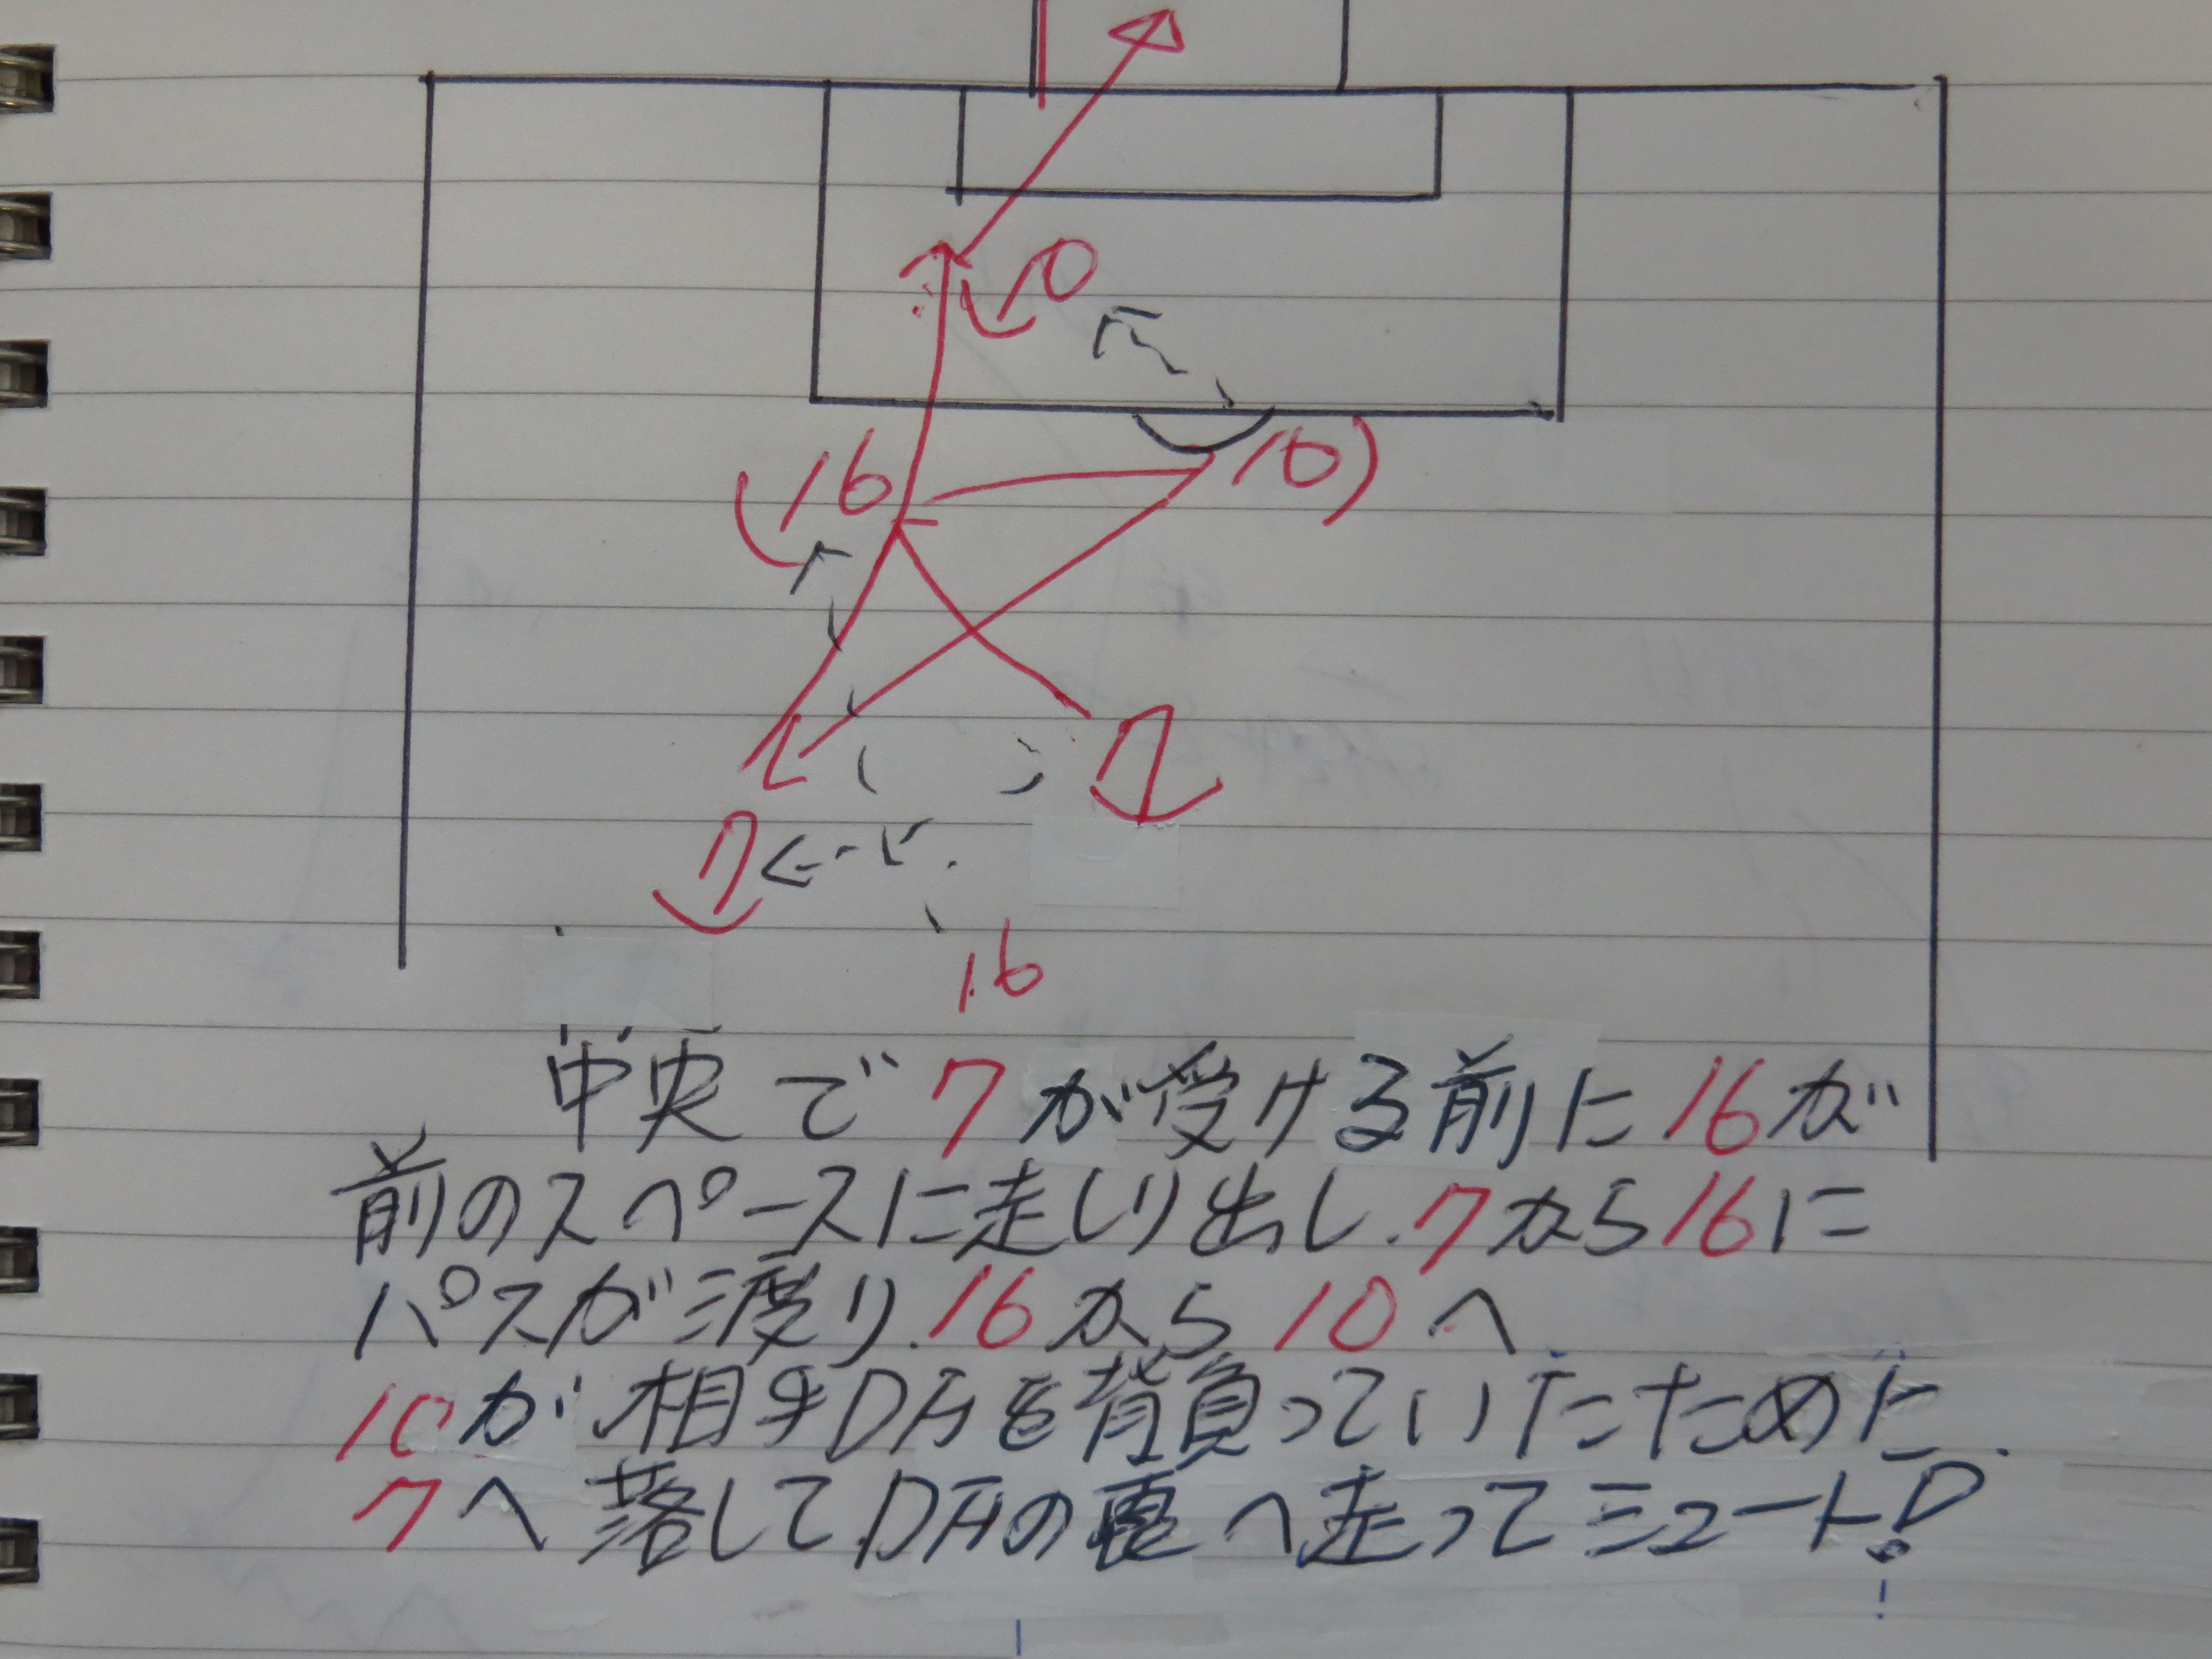 10
16
10
7
7
16
中央で7が受ける前に16が
前のスペースに走しり出し.7から16に
パスが渡り.16から10へ
10が相手DFを背負っていたために.
7へ落してDFの裏へ走ってシュート!